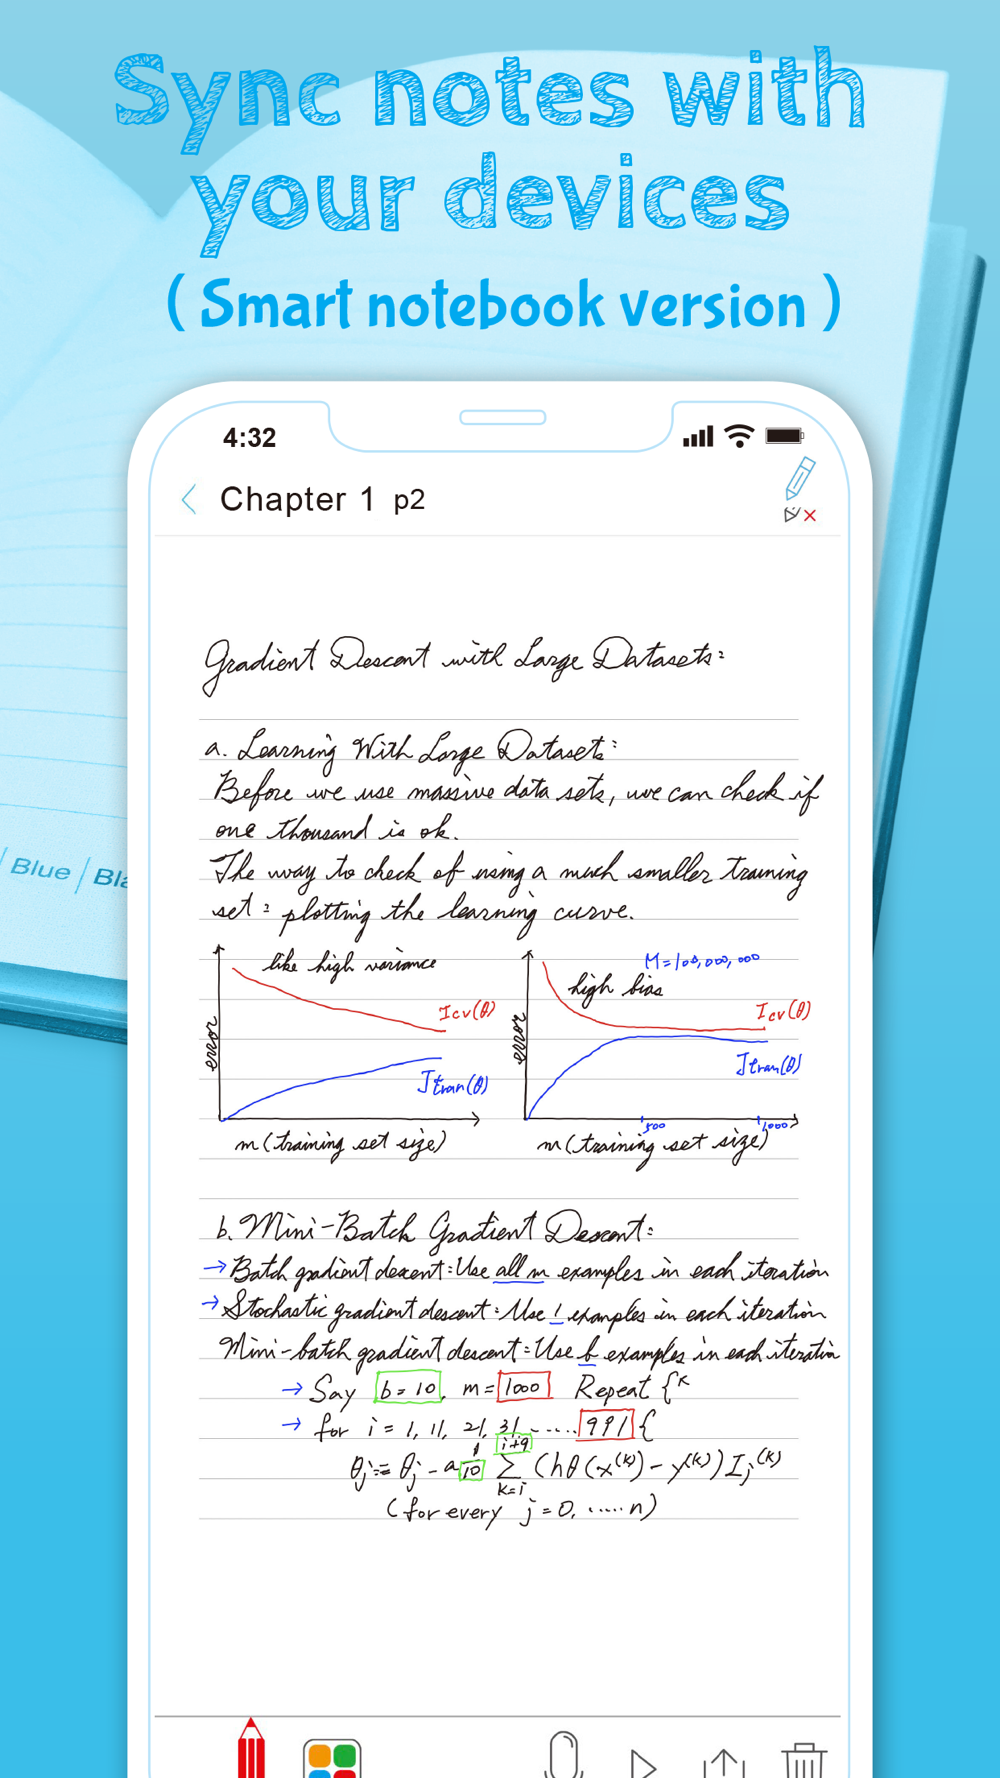 Sync notes with
your devices
( Smart notebook version )
4:32
Chapter 1 p2
Blue / Bla
Gradient Descent with Large Datasets:
a. Learning With Large Datasets:
Before we use massive data sets, we can check if
one thousand is ok.
The way to check of using a much smaller training
set: plotting the learning curve.
like high variance
error
Jcv(θ)
Jtran(θ)
m (training set size)
M=100,000,000
high bias
error
Jcv(θ)
Jtran(θ)
500
1000
m (training set size)
b. Mini-Batch Gradient Descent:
→ Batch gradient descent: Use all m examples in each iteration
→ Stochastic gradient descent: Use 1 examples in each iteration
Mini-batch gradient descent: Use b examples in each iteratin
→ Say b=10, m=1000 Repeat {
→ for i = 1, 11, 21, 31, ..... 991 {
θj := θj - a 1/10 Σ k=i i+9 (hθ(x(k)) - y(k)) Ij(k)
(for every j=0, ..... n)